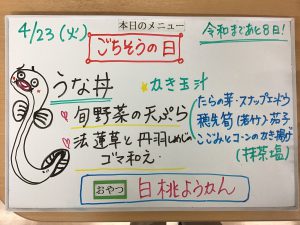 本日のメニュー
4/23(火)
ごちそうの日
令和まであと8日!
うな丼
かき玉汁
旬野菜の天ぷら
たらの芽・スナップエンドウ
穂先筍(若竹) 茄子
こごみとコーンのかき揚げ
(抹茶塩)
法蓮草と丹羽しめじの
ゴマ和え
おやつ
白桃ようかん